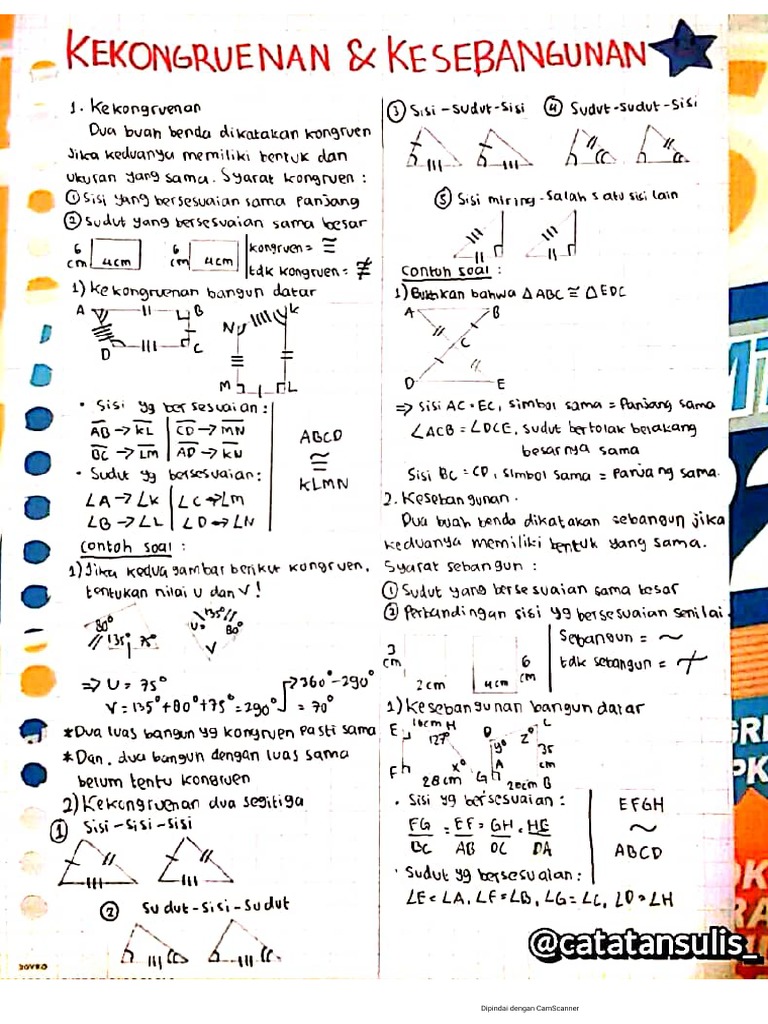 KEKONGRUENAN & KESEBANGUNAN
1. Kekongruenan
Dua buah benda dikatakan kongruen
Jika keduanya memiliki bentuk dan
ukuran yang sama. Syarat kongruen :
① Sisi yang bersesuaian sama panjang
② Sudut yang bersesuaian sama besar
6 cm 4cm 6 cm 4cm
kongruen = ≅
tdk kongruen = ≇
1) Kekongruenan bangun datar
A B
D C
N K
M L
• Sisi yg bersesuaian :
AB → KL | CD → MN
BC → LM | AD → KN
• Sudut yg bersesuaian :
∠A → ∠K | ∠C → ∠M
∠B → ∠L | ∠D → ∠N
ABCD
≅
KLMN
Contoh soal :
1) Jika kedua gambar berikut kongruen,
tentukan nilai U dan V!
80° 135° 75°
135° U= 80° V
=> U = 75°
V = 135° + 80° + 75° = 290°
360° - 290°
= 70°
*Dua luas bangun yg kongruen pasti sama
*Dan, dua bangun dengan luas sama
belum tentu kongruen
2) Kekongruenan dua segitiga
① Sisi - Sisi - Sisi
② Sudut - Sisi - Sudut
③ Sisi - Sudut - Sisi
④ Sudut - Sudut - Sisi
⑤ Sisi miring - Salah satu sisi lain
Contoh soal :
1) Buktikan bahwa △ABC ≅ △EDC
A B
C
D E
=> Sisi AC = EC, Simbol sama = Panjang sama
∠ACB = ∠DCE, sudut bertolak belakang
besarnya sama
Sisi BC = CD, Simbol sama = Panjang sama.
2. Kesebangunan.
Dua buah benda dikatakan sebangun jika
keduanya memiliki bentuk yang sama.
Syarat sebangun :
① Sudut yang bersesuaian sama besar
② Perbandingan sisi yg bersesuaian senilai.
3 cm 2cm 4cm 6 cm
Sebangun = ~
tdk sebangun = ≁
1) Kesebangunan bangun datar
E 16cm H
127°
F x° 28cm G
D C
y° z°
35 cm
A 20cm B
• Sisi yg bersesuaian :
FG/BC = EF/AB = GH/DC = HE/DA
• Sudut yg bersesuaian :
∠E = ∠A, ∠F = ∠B, ∠G = ∠C, ∠D = ∠H
EFGH
~
ABCD
@catatansulis_
Dipindai dengan CamScanner